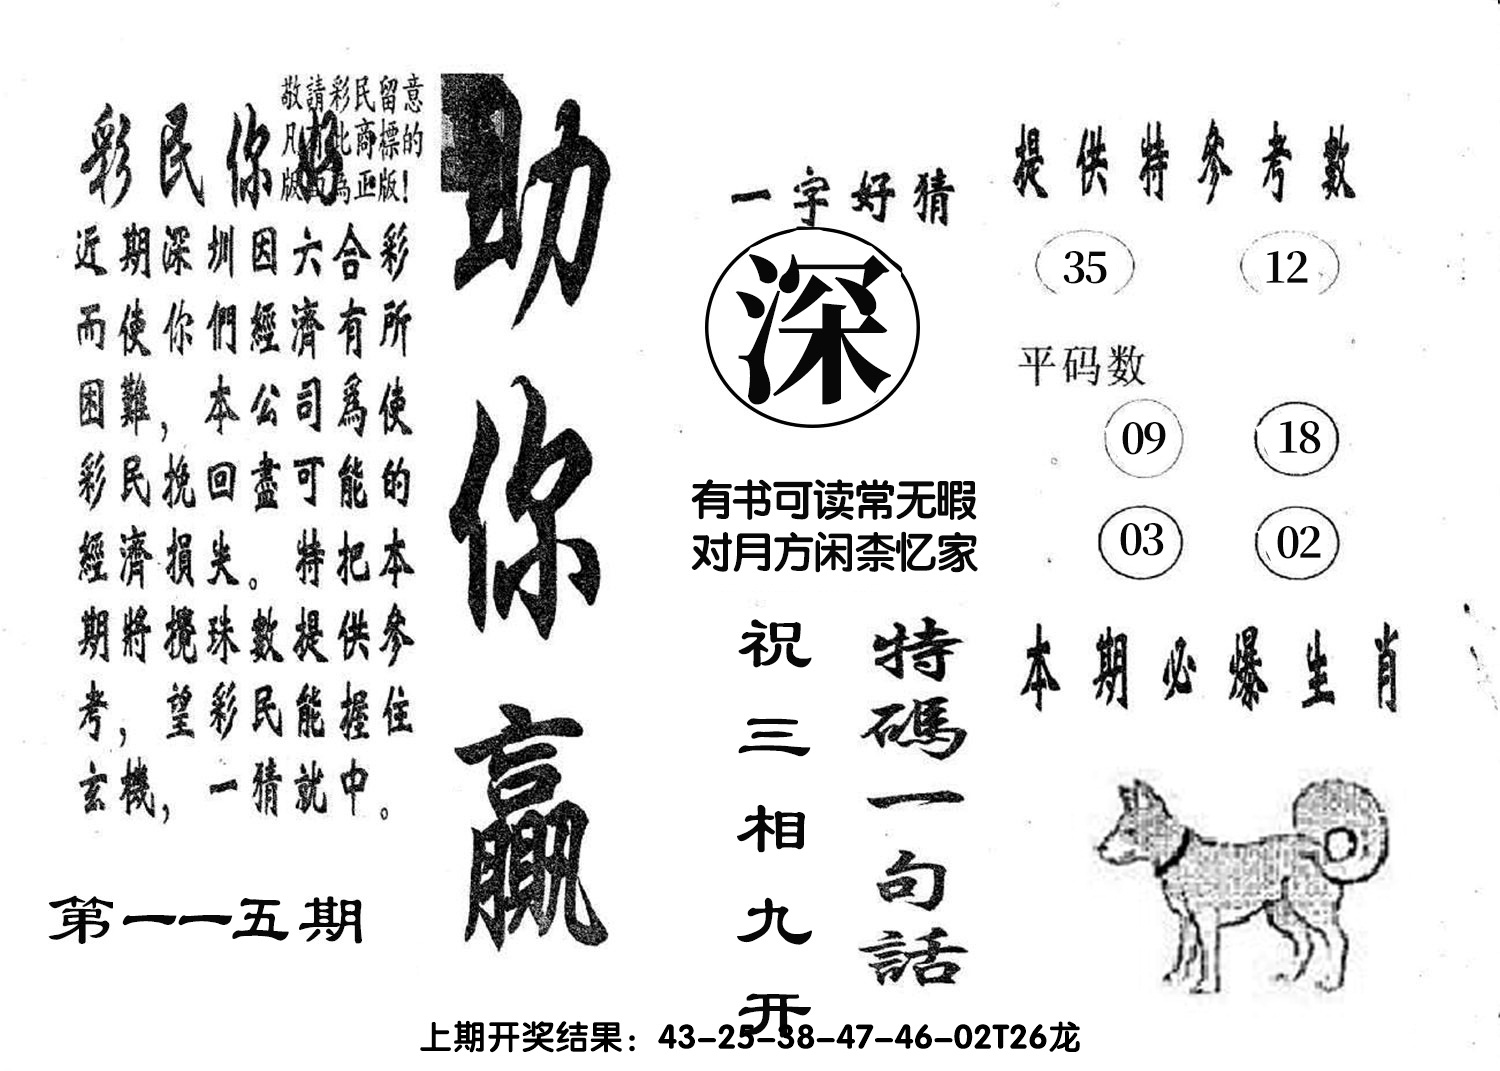 敬請彩民留意
凡有此商標的
版面為正版!
彩民你好
近期深圳因六合彩
而使你們經濟有所
困難，本公司爲使
彩民挽回盡可能的
經濟損失。特把本
期將攪珠數提供參
考，望彩民能握住
玄機，一猜就中。
第一一五期
助你贏
一字好猜
深
有书可读常无暇
对月方闲柰忆家
特碼一句話
祝三相九开
提供特参考數
35 12
平码数
09 18
03 02
本期必爆生肖
上期开奖结果：43-25-38-47-46-02T26龙